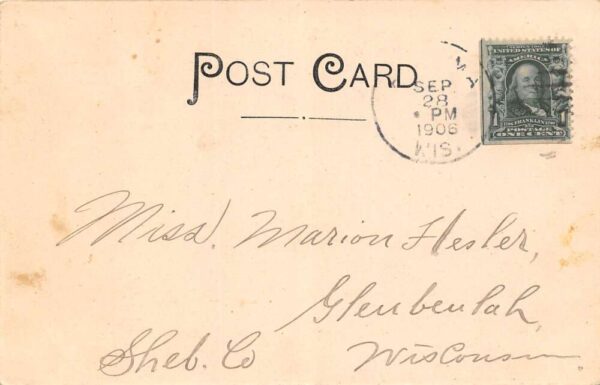 POST CARD
SEP
28
PM
1906
WIS.
SERIES 1902
UNITED STATES OF
AMERICA
FRANKLIN
POSTAGE
1 ONE CENT 1
Miss. Marion Hesler,
Glenbeulah,
Sheb. Co Wisconsin